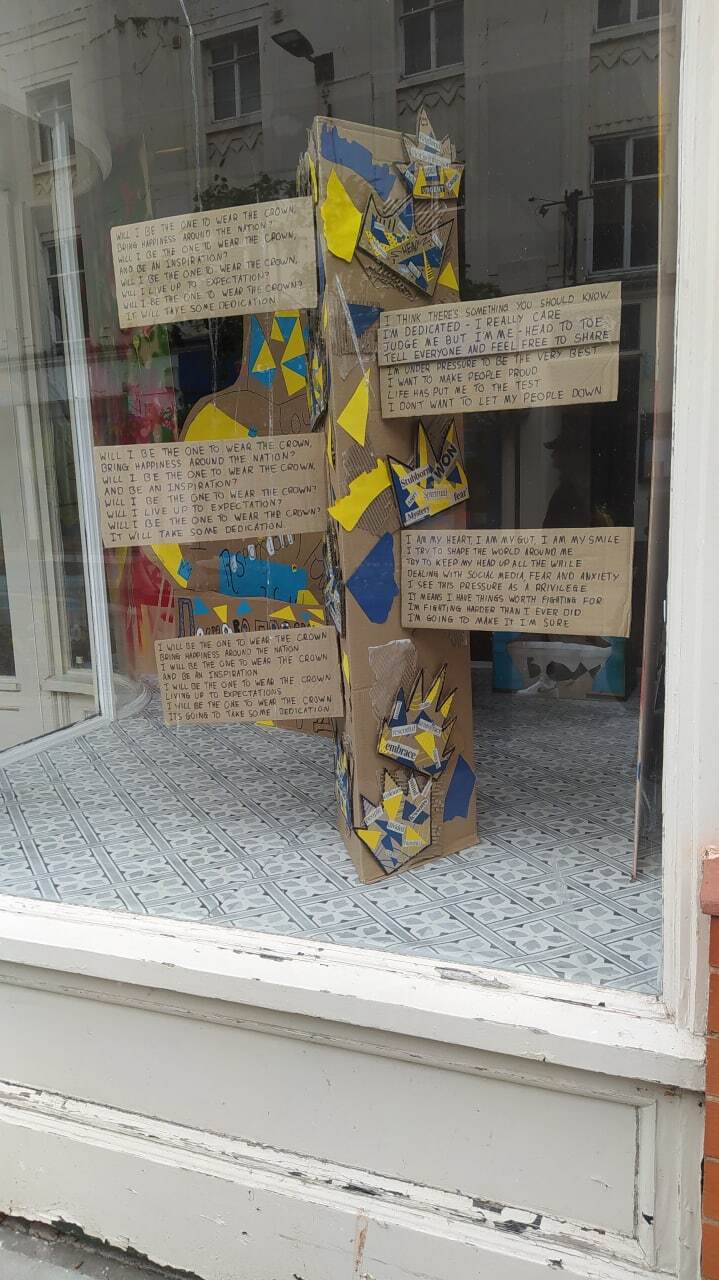 WILL I BE THE ONE TO WEAR THE CROWN,
BRING HAPPINESS AROUND THE NATION?
WILL I BE THE ONE TO WEAR THE CROWN,
AND BE AN INSPIRATION?
WILL I BE THE ONE TO WEAR THE CROWN,
WILL I LIVE UP TO EXPECTATION?
WILL I BE THE ONE TO WEAR THE CROWN?
IT WILL TAKE SOME DEDICATION
URGENT
I THINK THERE'S SOMETHING YOU SHOULD KNOW
I'M DEDICATED - I REALLY CARE
JUDGE ME BUT I'M ME - HEAD TO TOE
TELL EVERYONE AND FEEL FREE TO SHARE
I'M UNDER PRESSURE TO BE THE VERY BEST
I WANT TO MAKE PEOPLE PROUD
LIFE HAS PUT ME TO THE TEST
I DON'T WANT TO LET MY PEOPLE DOWN
WILL I BE THE ONE TO WEAR THE CROWN,
BRING HAPPINESS AROUND THE NATION?
WILL I BE THE ONE TO WEAR THE CROWN,
AND BE AN INSPIRATION?
WILL I BE THE ONE TO WEAR THE CROWN?
WILL I LIVE UP TO EXPECTATION?
WILL I BE THE ONE TO WEAR THE CROWN?
IT WILL TAKE SOME DEDICATION.
WON
Stubborn
Spiritual
fear
Mystery
I AM MY HEART, I AM MY GUT, I AM MY SMILE
I TRY TO SHAPE THE WORLD AROUND ME
TRY TO KEEP MY HEAD UP ALL THE WHILE
DEALING WITH SOCIAL MEDIA, FEAR AND ANXIETY
I SEE THIS PRESSURE AS A PRIVILEGE
IT MEANS I HAVE THINGS WORTH FIGHTING FOR
I'M FIGHTING HARDER THAN I EVER DID
I'M GOING TO MAKE IT I'M SURE
I WILL BE THE ONE TO WEAR THE CROWN
BRING HAPPINESS AROUND THE NATION
I WILL BE THE ONE TO WEAR THE CROWN
AND BE AN INSPIRATION
I WILL BE THE ONE TO WEAR THE CROWN
LIVING UP TO EXPECTATIONS
I WILL BE THE ONE TO WEAR THE CROWN
ITS GOING TO TAKE SOME DEDICATION
embrace